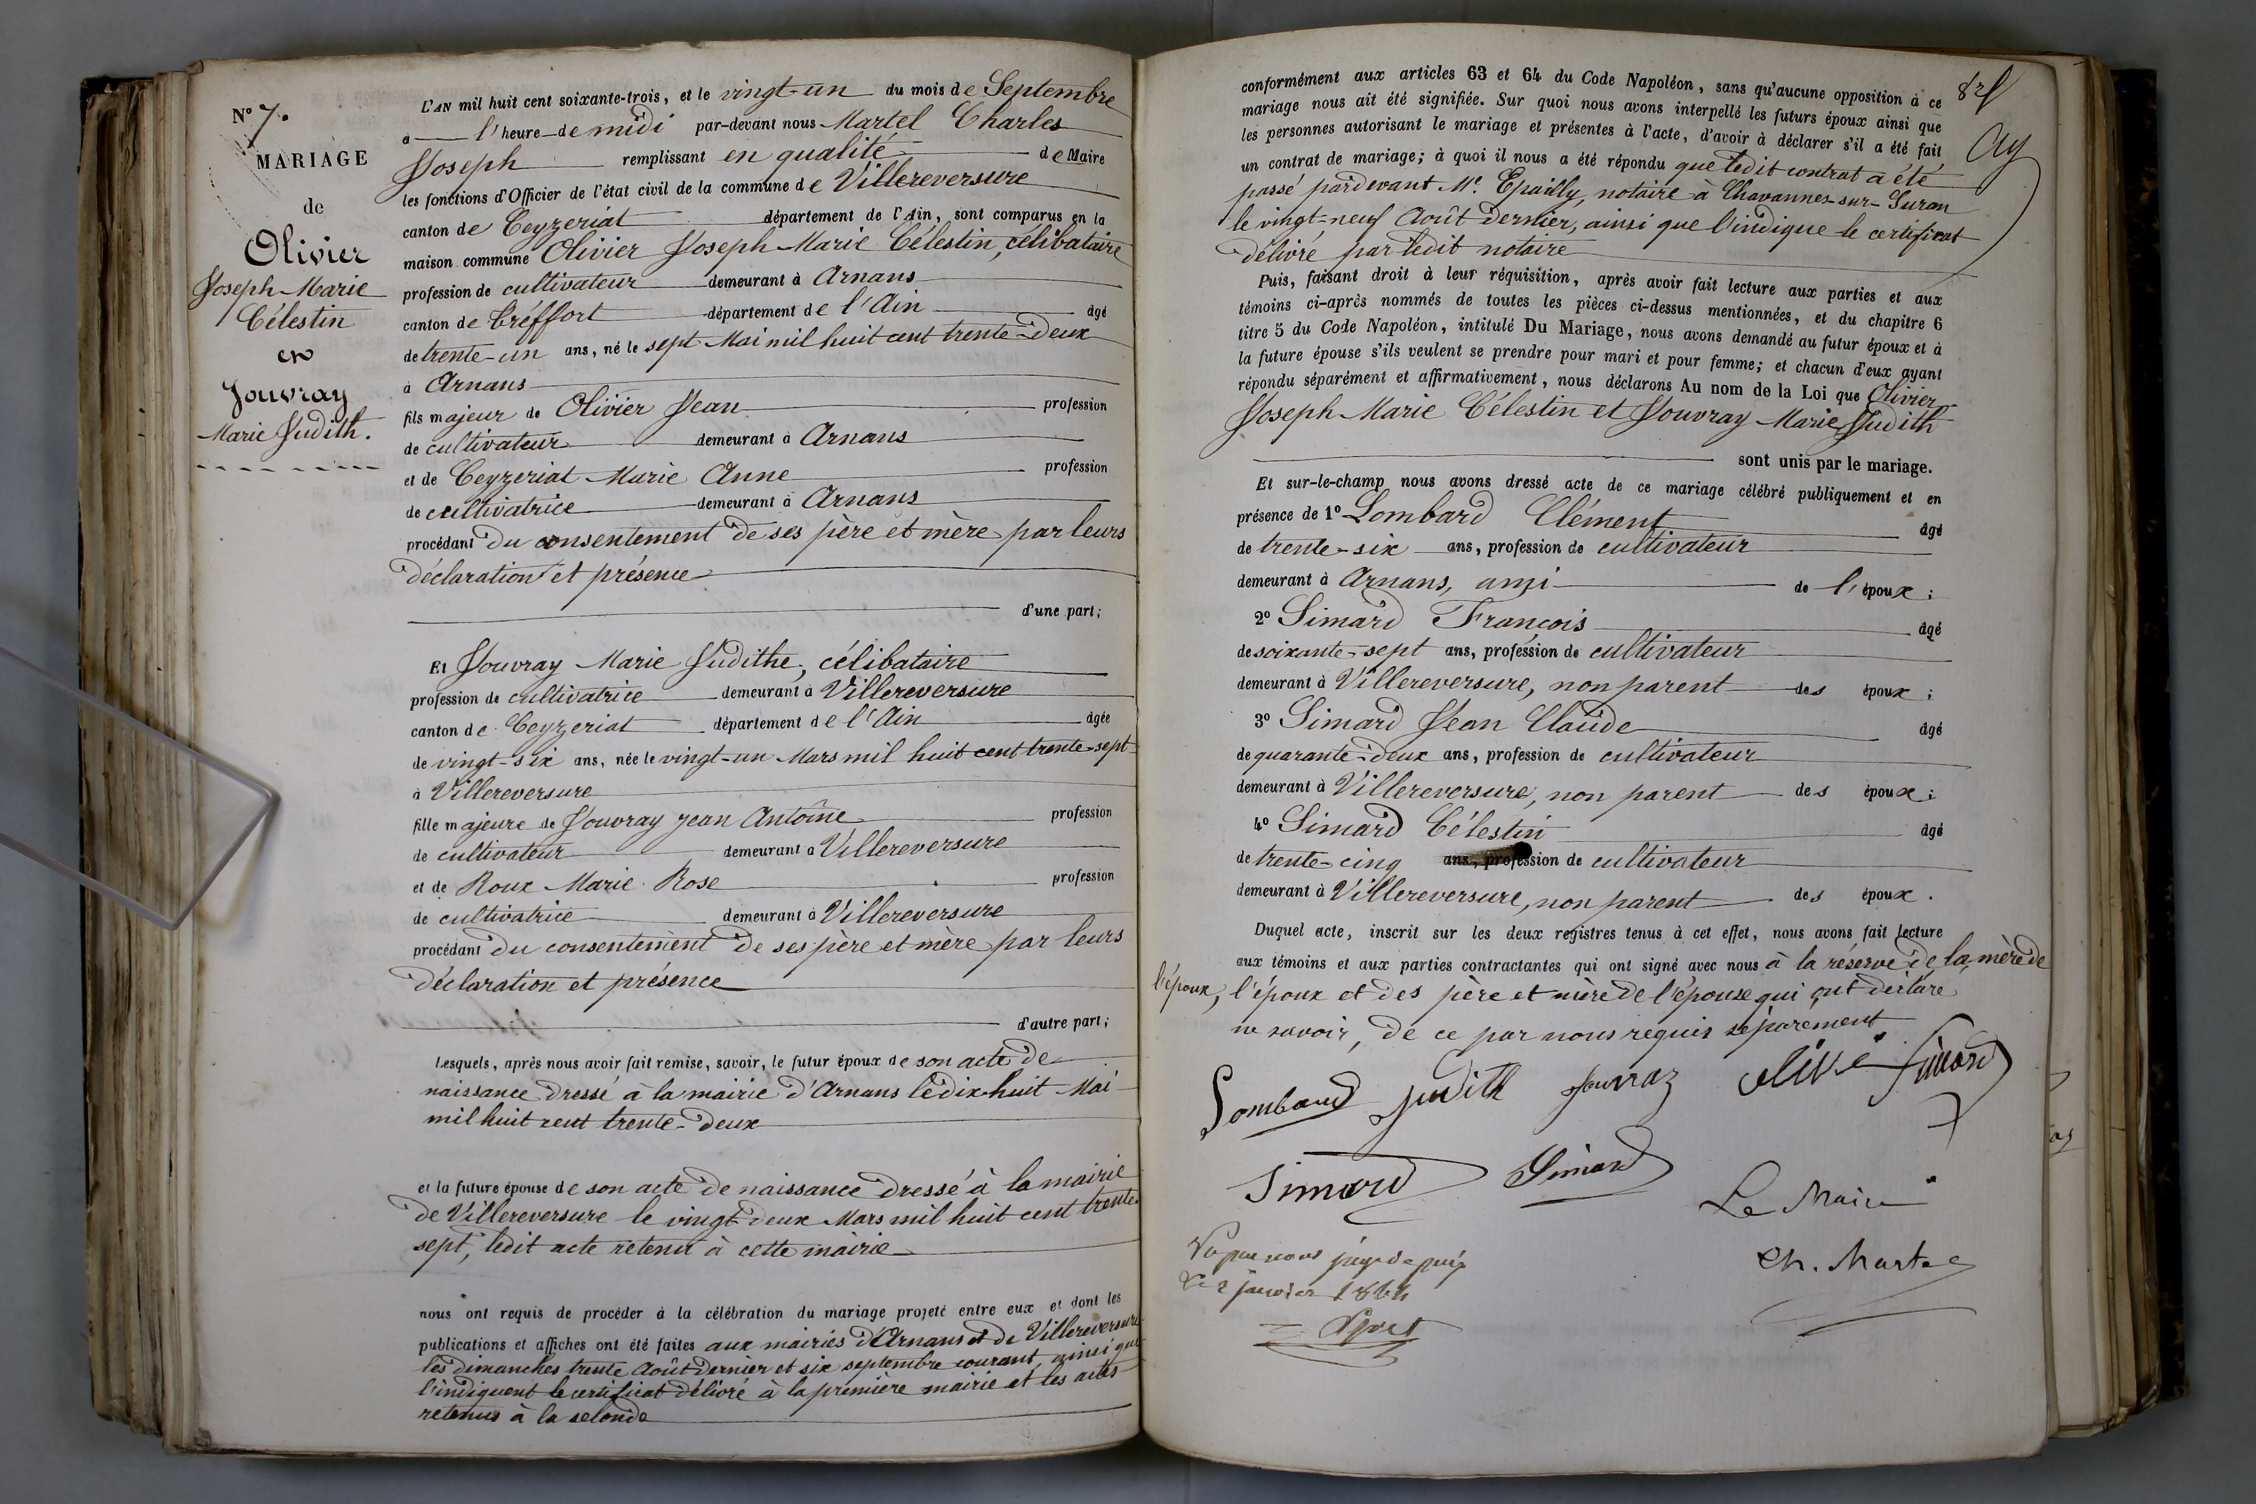 N° 7.
MARIAGE
de
Olivier
Joseph Marie
Célestin
et
Jouvray
Marie Judith.
L'AN mil huit cent soixante-trois, et le vingt-un du mois de Septembre
a l'heure de midi par-devant nous Martel Charles
Joseph remplissant en qualité de Maire
les fonctions d'Officier de l'état civil de la commune de Villereversure
canton de Ceyzeriat département de l'Ain, sont comparus en la
maison commune Olivier Joseph Marie Célestin, célibataire
profession de cultivateur demeurant à Arnans
canton de Tréffort département de l'Ain âgé
de trente-un ans, né le sept Mai mil huit cent trente-deux
à Arnans
fils majeur de Olivier Jean profession
de cultivateur demeurant à Arnans
et de Ceyzeriat Marie Anne profession
de cultivatrice demeurant à Arnans
procédant du consentement de ses père et mère par leurs
déclaration et présence
d'une part;
Et Jouvray Marie Judithe, célibataire
profession de cultivatrice demeurant à Villereversure
canton de Ceyzeriat département de l'Ain âgée
de vingt-six ans, née le vingt-un Mars mil huit cent trente-sept
à Villereversure
fille majeure de Jouvray Jean Antoine profession
de cultivateur demeurant à Villereversure
et de Roux Marie Rose profession
de cultivatrice demeurant à Villereversure
procédant du consentement de ses père et mère par leurs
déclaration et présence
d'autre part;
Lesquels, après nous avoir fait remise, savoir, le futur époux de son acte de
naissance dressé à la mairie d'Arnans le dix-huit Mai
mil huit cent trente-deux
et la future épouse de son acte de naissance dressé à la mairie
de Villereversure le vingt-deux Mars mil huit cent trente-
sept, ledit acte retenu à cette mairie
nous ont requis de procéder à la célébration du mariage projeté entre eux et dont les
publications et affiches ont été faites aux mairies d'Arnans et de Villereversure
les dimanches trente Août dernier et six septembre courant, ainsi que
l'indiquent le certificat délivré à la première mairie et les actes
retenus à la seconde
conformément aux articles 63 et 64 du Code Napoléon, sans qu'aucune opposition à ce
mariage nous ait été signifiée. Sur quoi nous avons interpellé les futurs époux ainsi que
les personnes autorisant le mariage et présentes à l'acte, d'avoir à déclarer s'il a été fait
un contrat de mariage; à quoi il nous a été répondu que ledit contrat a été
passé pardevant Me. Epailly, notaire à Chavannes-sur-Suran
le vingt-neuf Août dernier, ainsi que l'indique le certificat
délivré par ledit notaire
Puis, faisant droit à leur réquisition, après avoir fait lecture aux parties et aux
témoins ci-après nommés de toutes les pièces ci-dessus mentionnées, et du chapitre 6
titre 5 du Code Napoléon, intitulé Du Mariage, nous avons demandé au futur époux et à
la future épouse s'ils veulent se prendre pour mari et pour femme; et chacun d'eux ayant
répondu séparément et affirmativement, nous déclarons Au nom de la Loi que Olivier
Joseph Marie Célestin et Jouvray Marie Judith
sont unis par le mariage.
Et sur-le-champ nous avons dressé acte de ce mariage célébré publiquement et en
présence de 1° Lombard Clément âgé
de trente-six ans, profession de cultivateur
demeurant à Arnans, ami de l'époux;
2° Simard François âgé
de soixante-sept ans, profession de cultivateur
demeurant à Villereversure, non parent des époux;
3° Simard Jean Claude âgé
de quarante-deux ans, profession de cultivateur
demeurant à Villereversure, non parent des époux;
4° Simard Célestin âgé
de trente-cinq ans, profession de cultivateur
demeurant à Villereversure, non parent des époux.
Duquel acte, inscrit sur les deux registres tenus à cet effet, nous avons fait lecture
aux témoins et aux parties contractantes qui ont signé avec nous à la réserve de la mère de
l'époux, l'époux et des père et mère de l'épouse qui ont déclaré
ne savoir, de ce par nous requis séparément
Lombard Judith Jouvray Olivié Simard
Simard Simard
Le Maire
Ch. Martel
Vu par nous juge de paix
le 2 janvier 1864